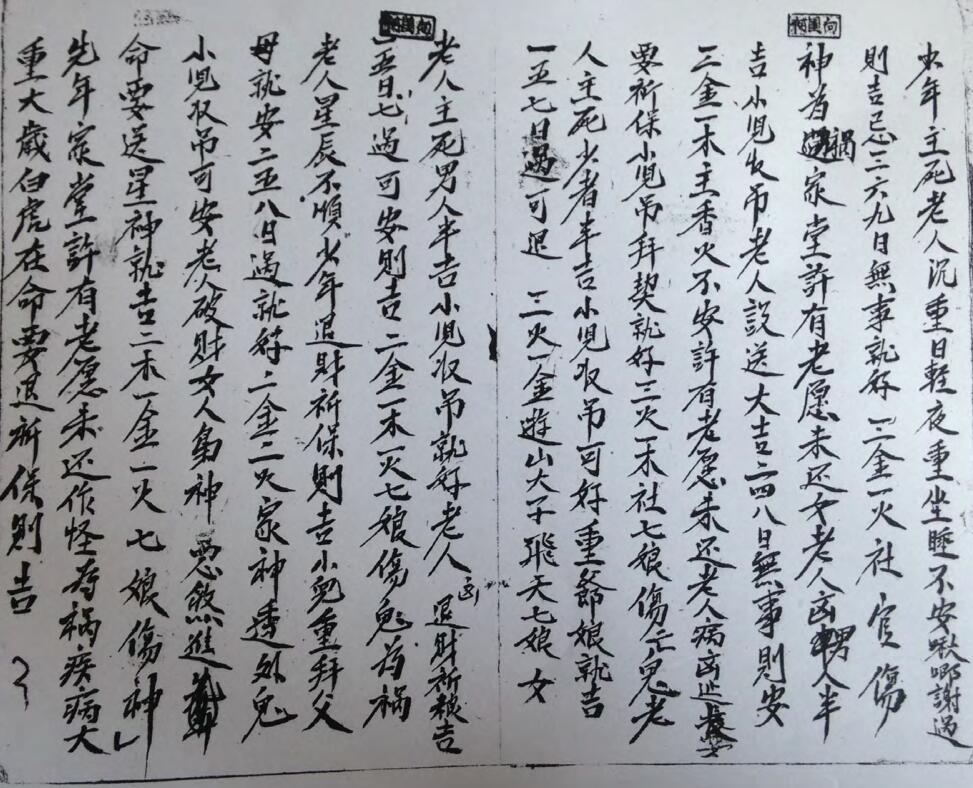 虫年主死老人沉重日輕夜重坐睡不安啾唧謝過
則吉忌二六九日無事就好 三金一火社官傷
神為禍家堂許有老愿未还女老人凶男人半
吉小児收吊老人設送大吉二四八日無事則安
三金一木主香火不安許有老愿未还老人病凶
要祈保小児吊拜契就好三火一木社七娘傷亡鬼老
人主死少者半吉小児收吊可好重爺娘就吉
一五七日過可退 三火一金遊山大子飛天七娘女
老人主死男人半吉小児收吊就好老人凶退財祈粮吉
五日七過可安則吉 二金一木一火七娘傷鬼為禍
老人星辰不順少年退財祈保則吉小兒重拜父
母就安二五八日過就好 二金二火家神透外鬼
小児收吊可安老人破財女人梟神惡煞進
命要送星神就吉二木一金一火七娘傷神
先年家堂許有老愿未还作怪為禍疾病大
重大歲白虎在命要退祈保則吉